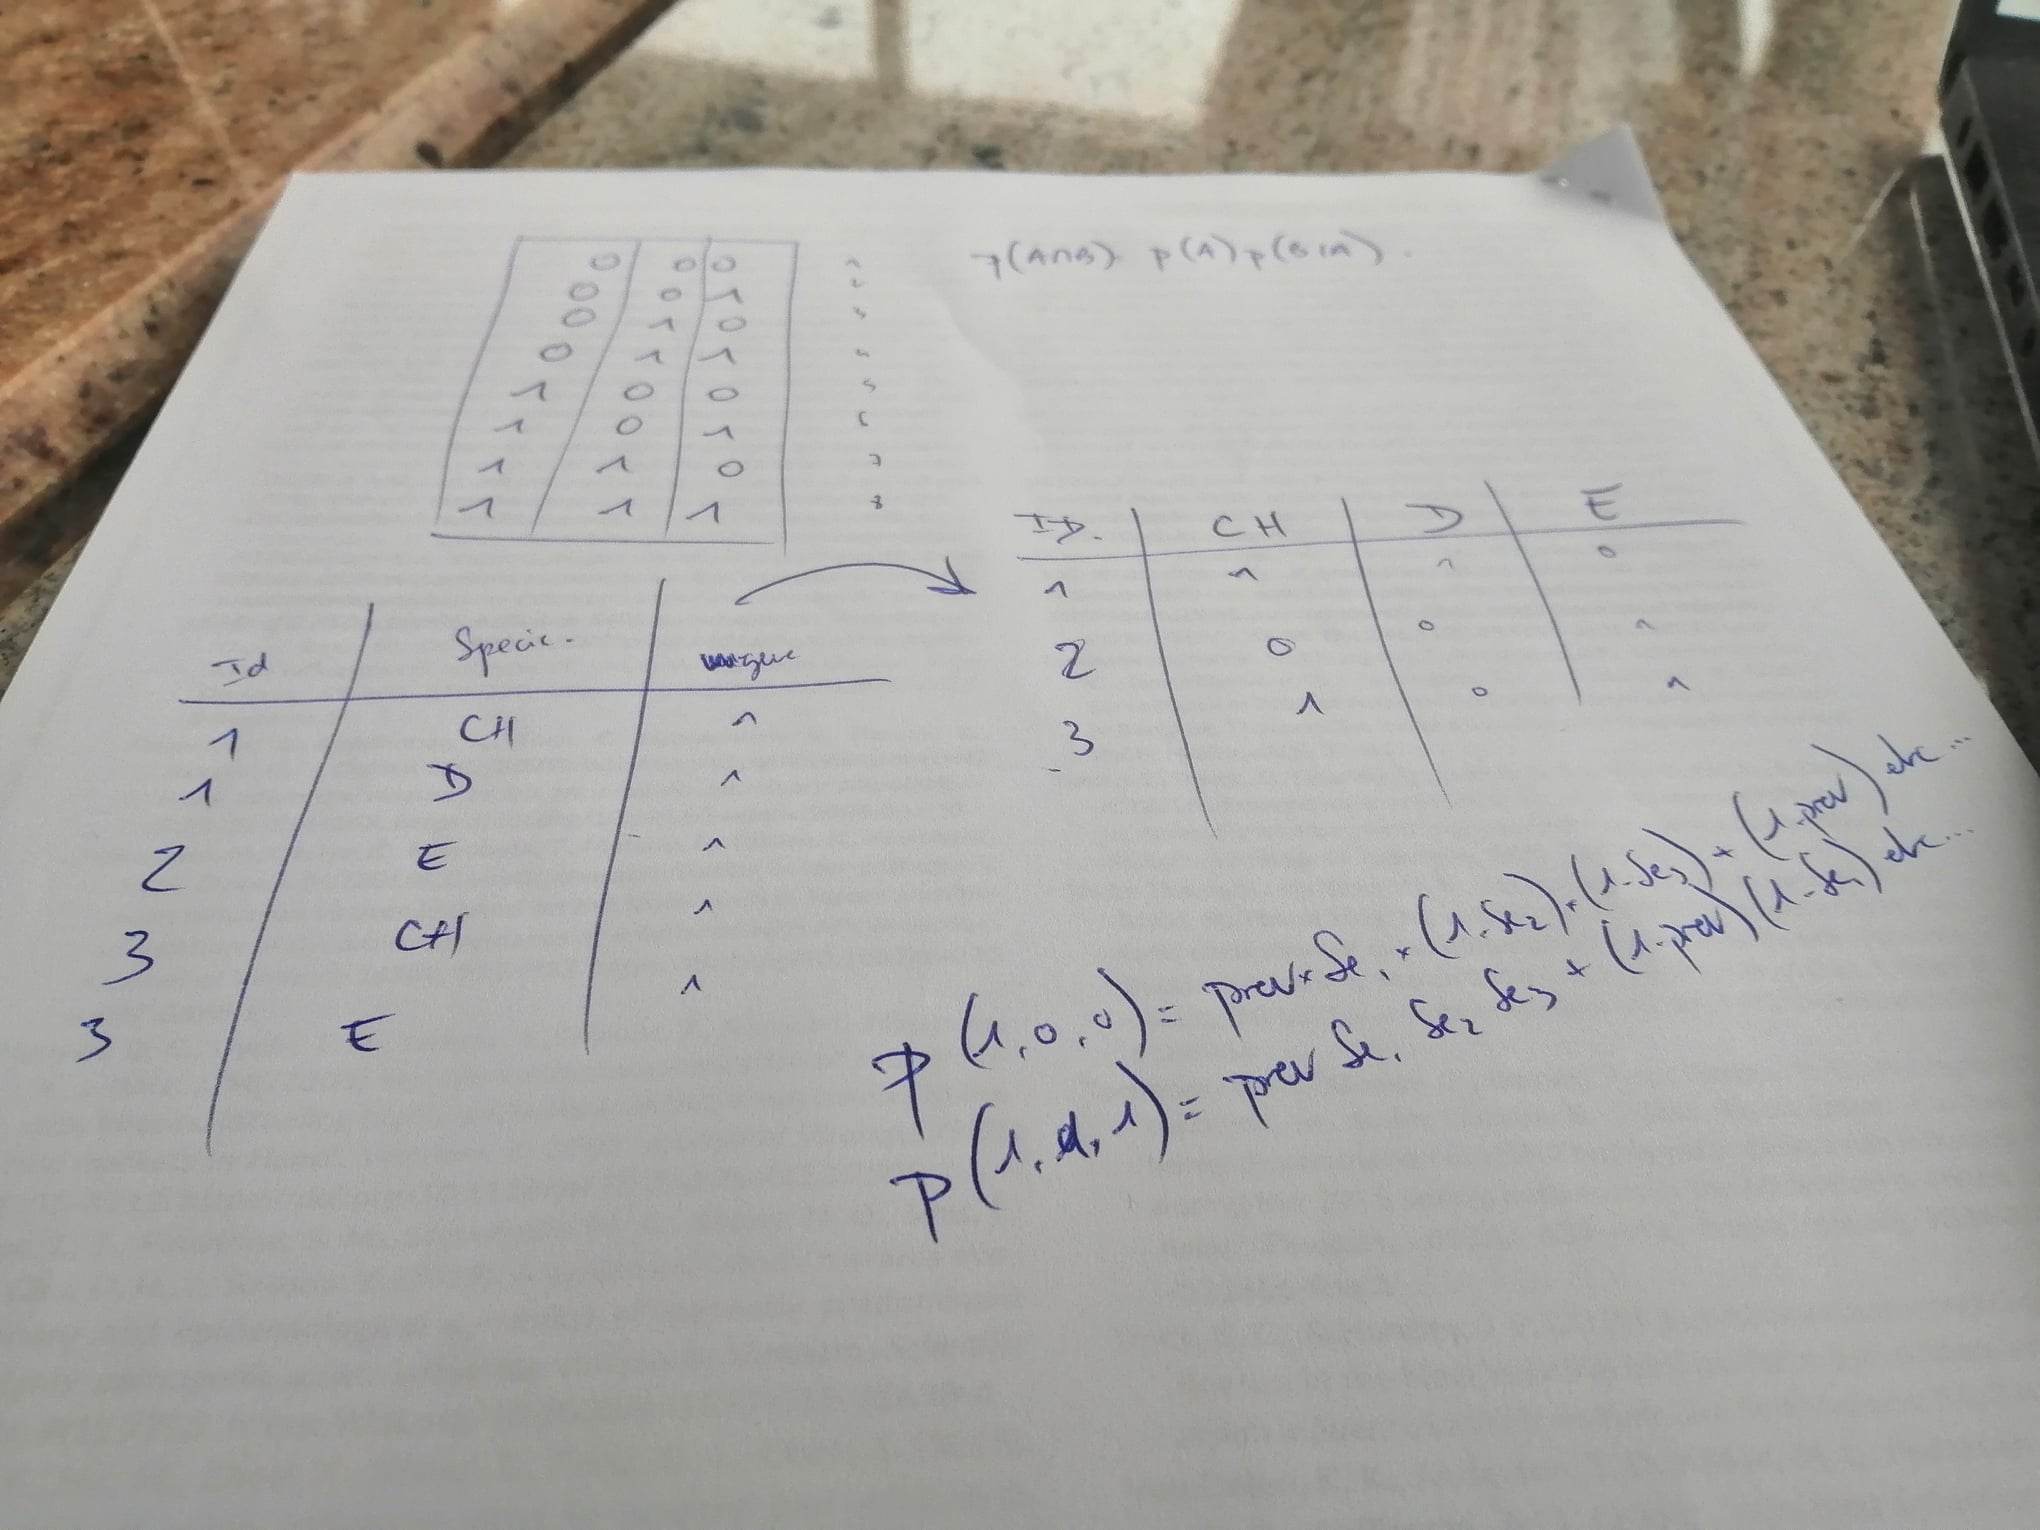 0 0 0 1
0 0 1 2
0 1 0 3
0 1 1 4
1 0 0 5
1 0 1 6
1 1 0 7
1 1 1 8
p(A∩B) p(A)p(B|A).
Id Specie. unique
1 CH 1
1 D 1
2 E 1
3 CH 1
3 E 1
ID. CH D E
1 1 1 0
2 0 0 1
3 1 0 1
p(1,0,0) = prev * Se1 * (1-Se2) * (1-Se3) + (1-prev) etc...
p(1,1,1) = prev Se1 Se2 Se3 + (1-prev)(1-Se1) etc...